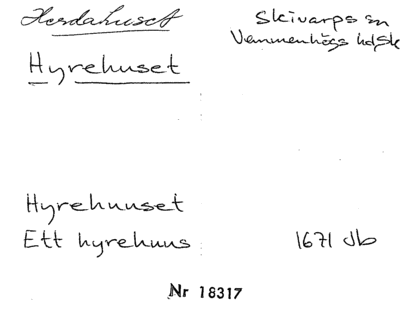 Herdahuset
Skivarps sn
Vemmenhögs hd, Sk
Hyrehuset
Hyrehuuset
Ett hyrehuus 1671 Jb
Nr 18317